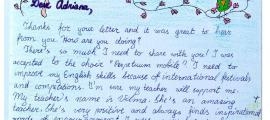 Dear Adriana,
Thanks for your letter and it was great to hear
from you. How are you doing?
There's so much I need to share with you! I was
accepted to the choir "Perpetuum mobile"! I need to
improve my English skills because of international festivals
and competitions. I'm sure my teacher will support me.
My teacher's name is Velma. She's an amazing
teacher. She's very positive and always finds inspirational
words of